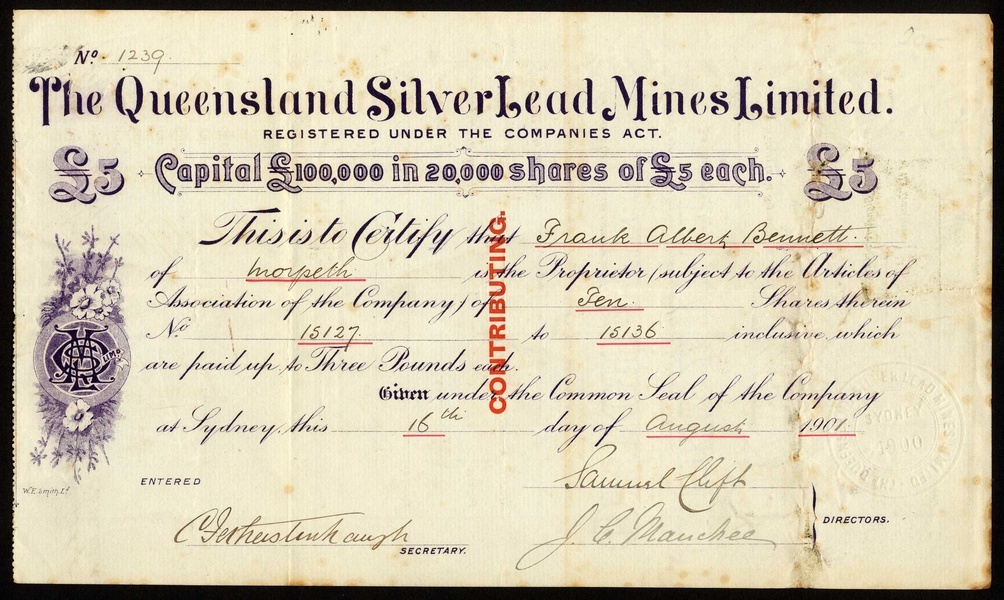 Nº 1239.
The Queensland Silver Lead Mines Limited.
REGISTERED UNDER THE COMPANIES ACT.
£5 Capital £100,000 in 20,000 shares of £5 each. £5
This is to Certify that Frank Albert Bennett.
of Morpeth is the Proprietor (subject to the Articles of
Association of the Company) of Ten. Shares therein
Nº 15127. to 15136 inclusive, which
are paid up to Three Pounds each.
CONTRIBUTING.
Given under the Common Seal of the Company
at Sydney, this 16th day of August 1901.
SYDNEY
1900
W.E. Smith. Ld
ENTERED
Samuel Clift
J. C. Manchee
DIRECTORS.
SECRETARY.